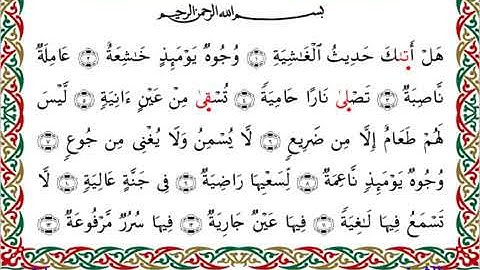 بسم الله الرحمن الرحيم
هَلْ أَتَىٰكَ حَدِيثُ ٱلْغَٰشِيَةِ ١ وُجُوهٌ يَوْمَئِذٍ خَٰشِعَةٌ ٢ عَامِلَةٌ
نَّاصِبَةٌ ٣ تَصْلَىٰ نَارًا حَامِيَةً ٤ تُسْقَىٰ مِنْ عَيْنٍ ءَانِيَةٍ ٥ لَّيْسَ
لَهُمْ طَعَامٌ إِلَّا مِن ضَرِيعٍ ٦ لَّا يُسْمِنُ وَلَا يُغْنِى مِن جُوعٍ ٧
وُجُوهٌ يَوْمَئِذٍ نَّاعِمَةٌ ٨ لِّسَعْيِهَا رَاضِيَةٌ ٩ فِى جَنَّةٍ عَالِيَةٍ ١٠ لَّا
تَسْمَعُ فِيهَا لَٰغِيَةً ١١ فِيهَا عَيْنٌ جَارِيَةٌ ١٢ فِيهَا سُرُرٌ مَّرْفُوعَةٌ ١٣